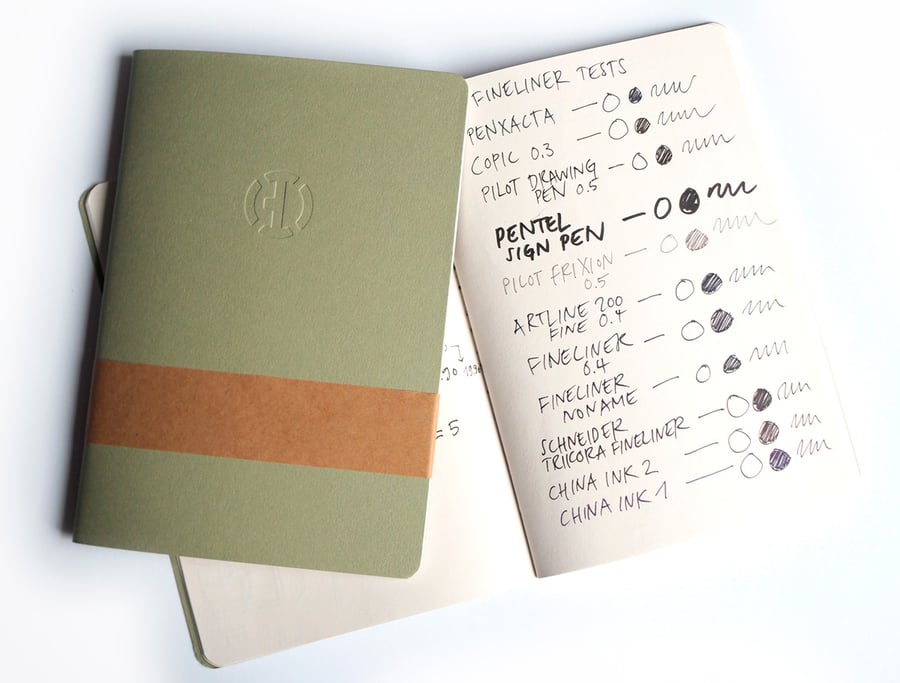 FINELINER TESTS
PENXACTA
COPIC 0.3
PILOT DRAWING
PEN 0.5
PENTEL
SIGN PEN
PILOT FRIXION
0.5
ARTLINE 200
FINE 0.4
FINELINER
0.4
FINELINER
NONAME
SCHNEIDER
TRICORA FINELINER
CHINA INK 2
CHINA INK 1
= 5